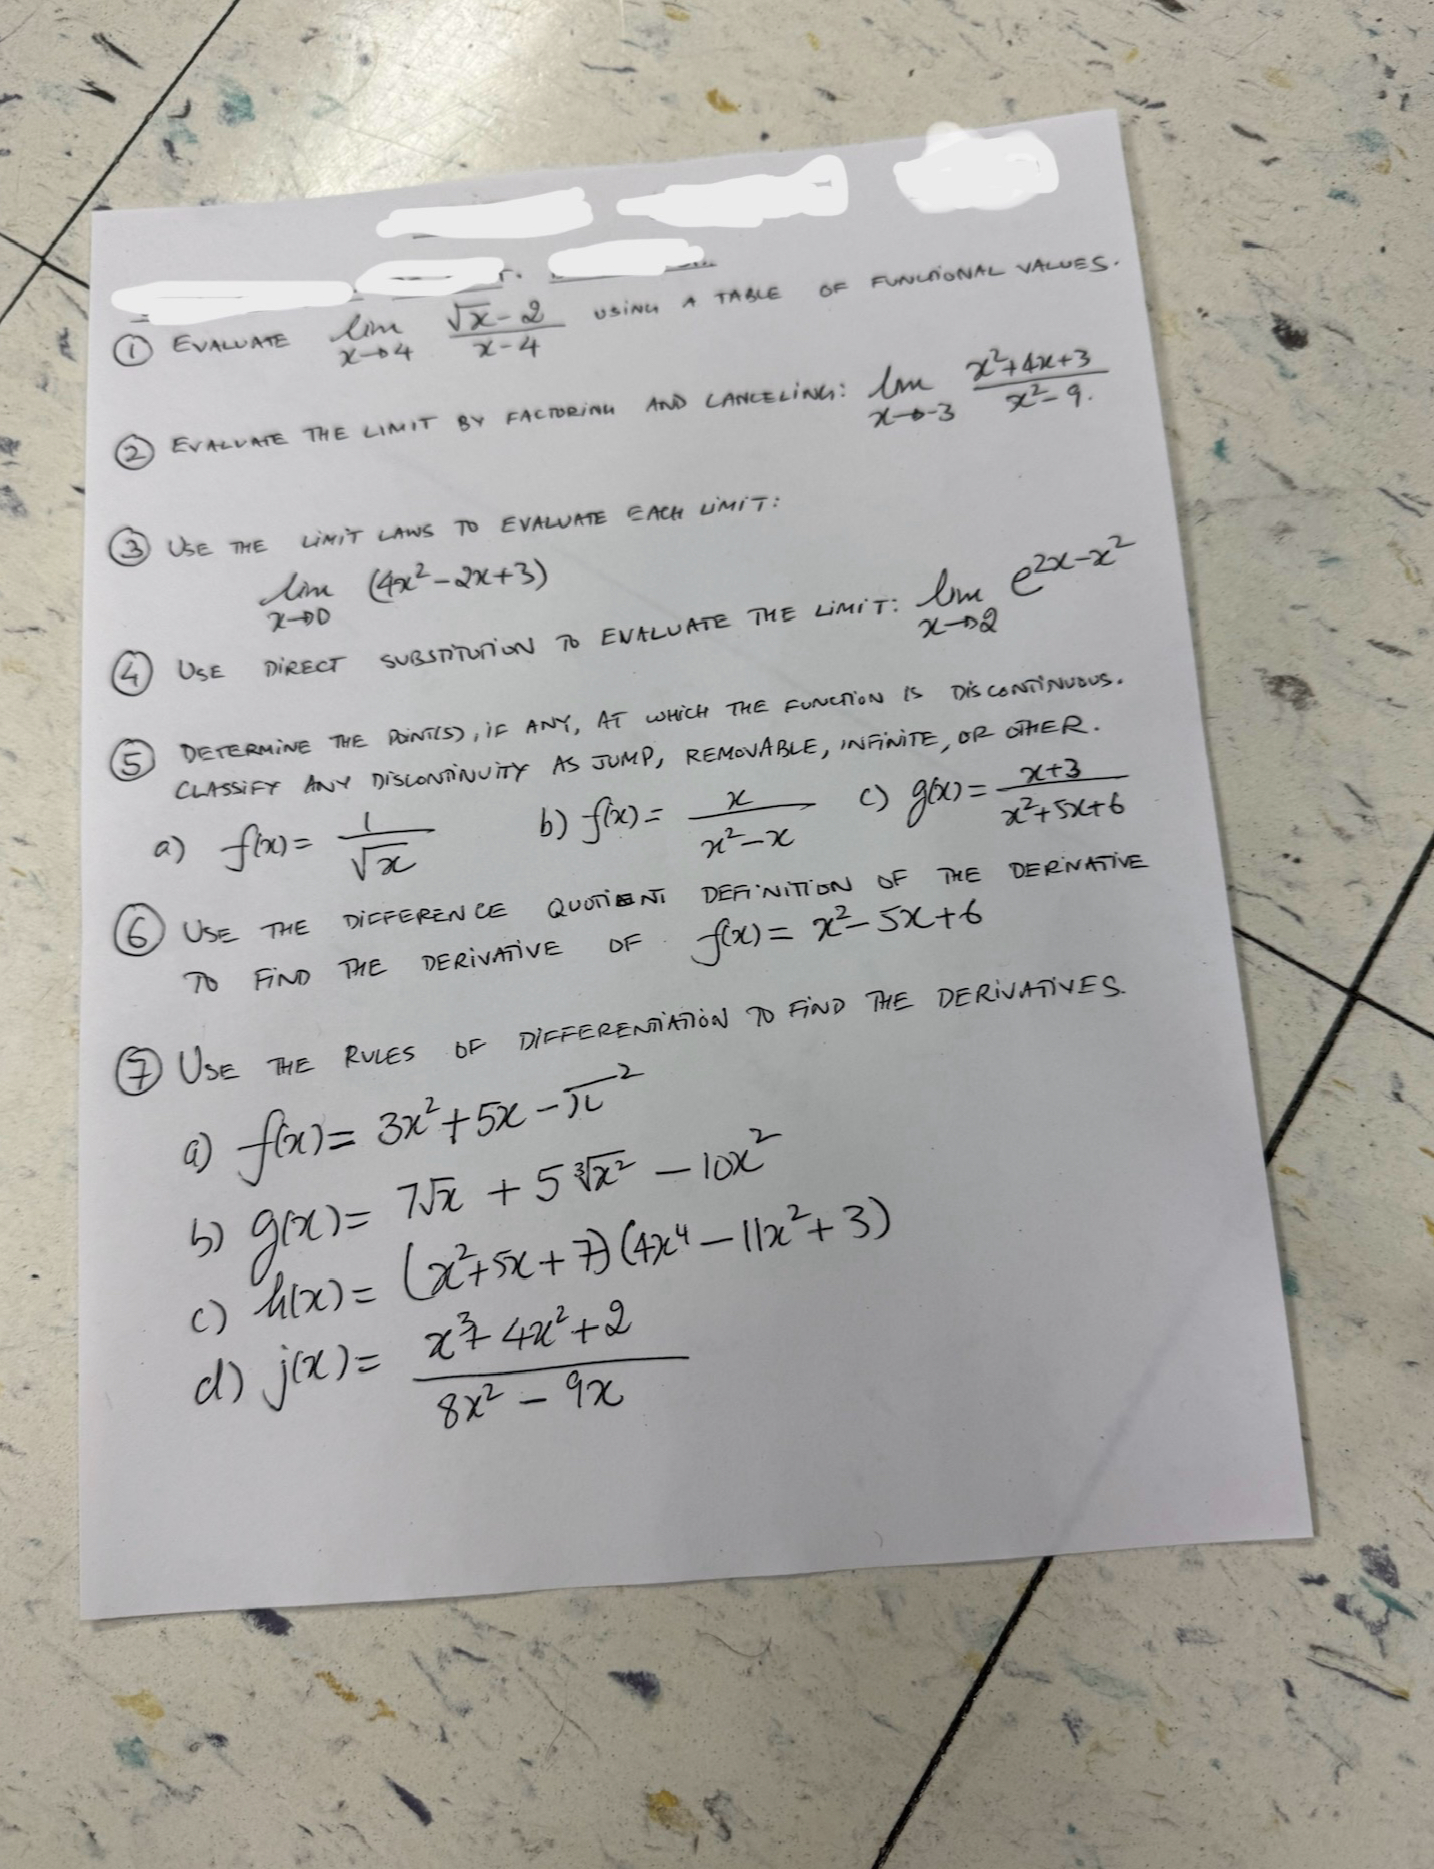 ① EVALUATE lim x→4 (√x - 2)/(x - 4) USING A TABLE OF FUNCTIONAL VALUES.
② EVALUATE THE LIMIT BY FACTORING AND CANCELING: lim x→-3 (x²+4x+3)/(x²-9).
③ USE THE LIMIT LAWS TO EVALUATE EACH LIMIT:
lim x→0 (4x²-2x+3)
④ USE DIRECT SUBSTITUTION TO EVALUATE THE LIMIT: lim x→2 e^(2x-x²)
⑤ DETERMINE THE POINT(S), IF ANY, AT WHICH THE FUNCTION IS DISCONTINUOUS.
CLASSIFY ANY DISCONTINUITY AS JUMP, REMOVABLE, INFINITE, OR OTHER.
a) f(x) = 1/√x b) f(x) = x/(x²-x) c) g(x) = (x+3)/(x²+5x+6)
⑥ USE THE DIFFERENCE QUOTIENT DEFINITION OF THE DERIVATIVE
TO FIND THE DERIVATIVE OF f(x) = x²-5x+6
⑦ USE THE RULES OF DIFFERENTIATION TO FIND THE DERIVATIVES.
a) f(x) = 3x²+5x-π²
b) g(x) = 7√x + 5∛x² - 10x²
c) h(x) = (x²+5x+7)(4x⁴-11x²+3)
d) j(x) = (x³+4x²+2)/(8x²-9x)